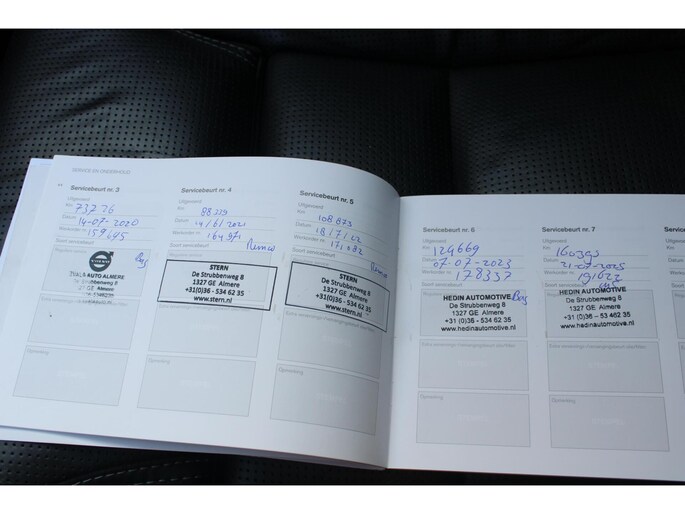 SERVICE EN ONDERHOUD
Servicebeurt nr. 3
Uitgevoerd
Km 73736
Datum 14-07-2020
Werkorder nr. 159495
Soort servicebeurt
AUTO ALMERE
Opmerking
Servicebeurt nr. 4
Uitgevoerd
Km 88219
Datum 14/6/2021
Werkorder nr. 164971
Soort servicebeurt
Remco
STERN
De Strubbenweg 8
1327 GE Almere
+31(0)36 - 534 62 35
www.stern.nl
Opmerking
Servicebeurt nr. 5
Uitgevoerd
Km 108 873
Datum 18/7/22
Werkorder nr. 171082
Soort servicebeurt
Remco
STERN
De Strubbenweg 8
1327 GE Almere
+31(0)36 - 534 62 35
www.stern.nl
Opmerking
Servicebeurt nr. 6
Uitgevoerd
Km 124669
Datum 07-07-2023
Werkorder nr. 178337
Soort servicebeurt
HEDIN AUTOMOTIVE
De Strubbenweg 8
1327 GE Almere
+31 (0)36 - 534 62 35
www.hedinautomotive.nl
Opmerking
Servicebeurt nr. 7
Uitgevoerd
Km 160393
Datum 21-07-2025
Werkorder nr. 191622
Soort servicebeurt
HEDIN AUTOMOTIVE
De Strubbenweg 8
1327 GE Almere
+31 (0)36 - 534 62 35
www.hedinautomotive.nl
Opmerking